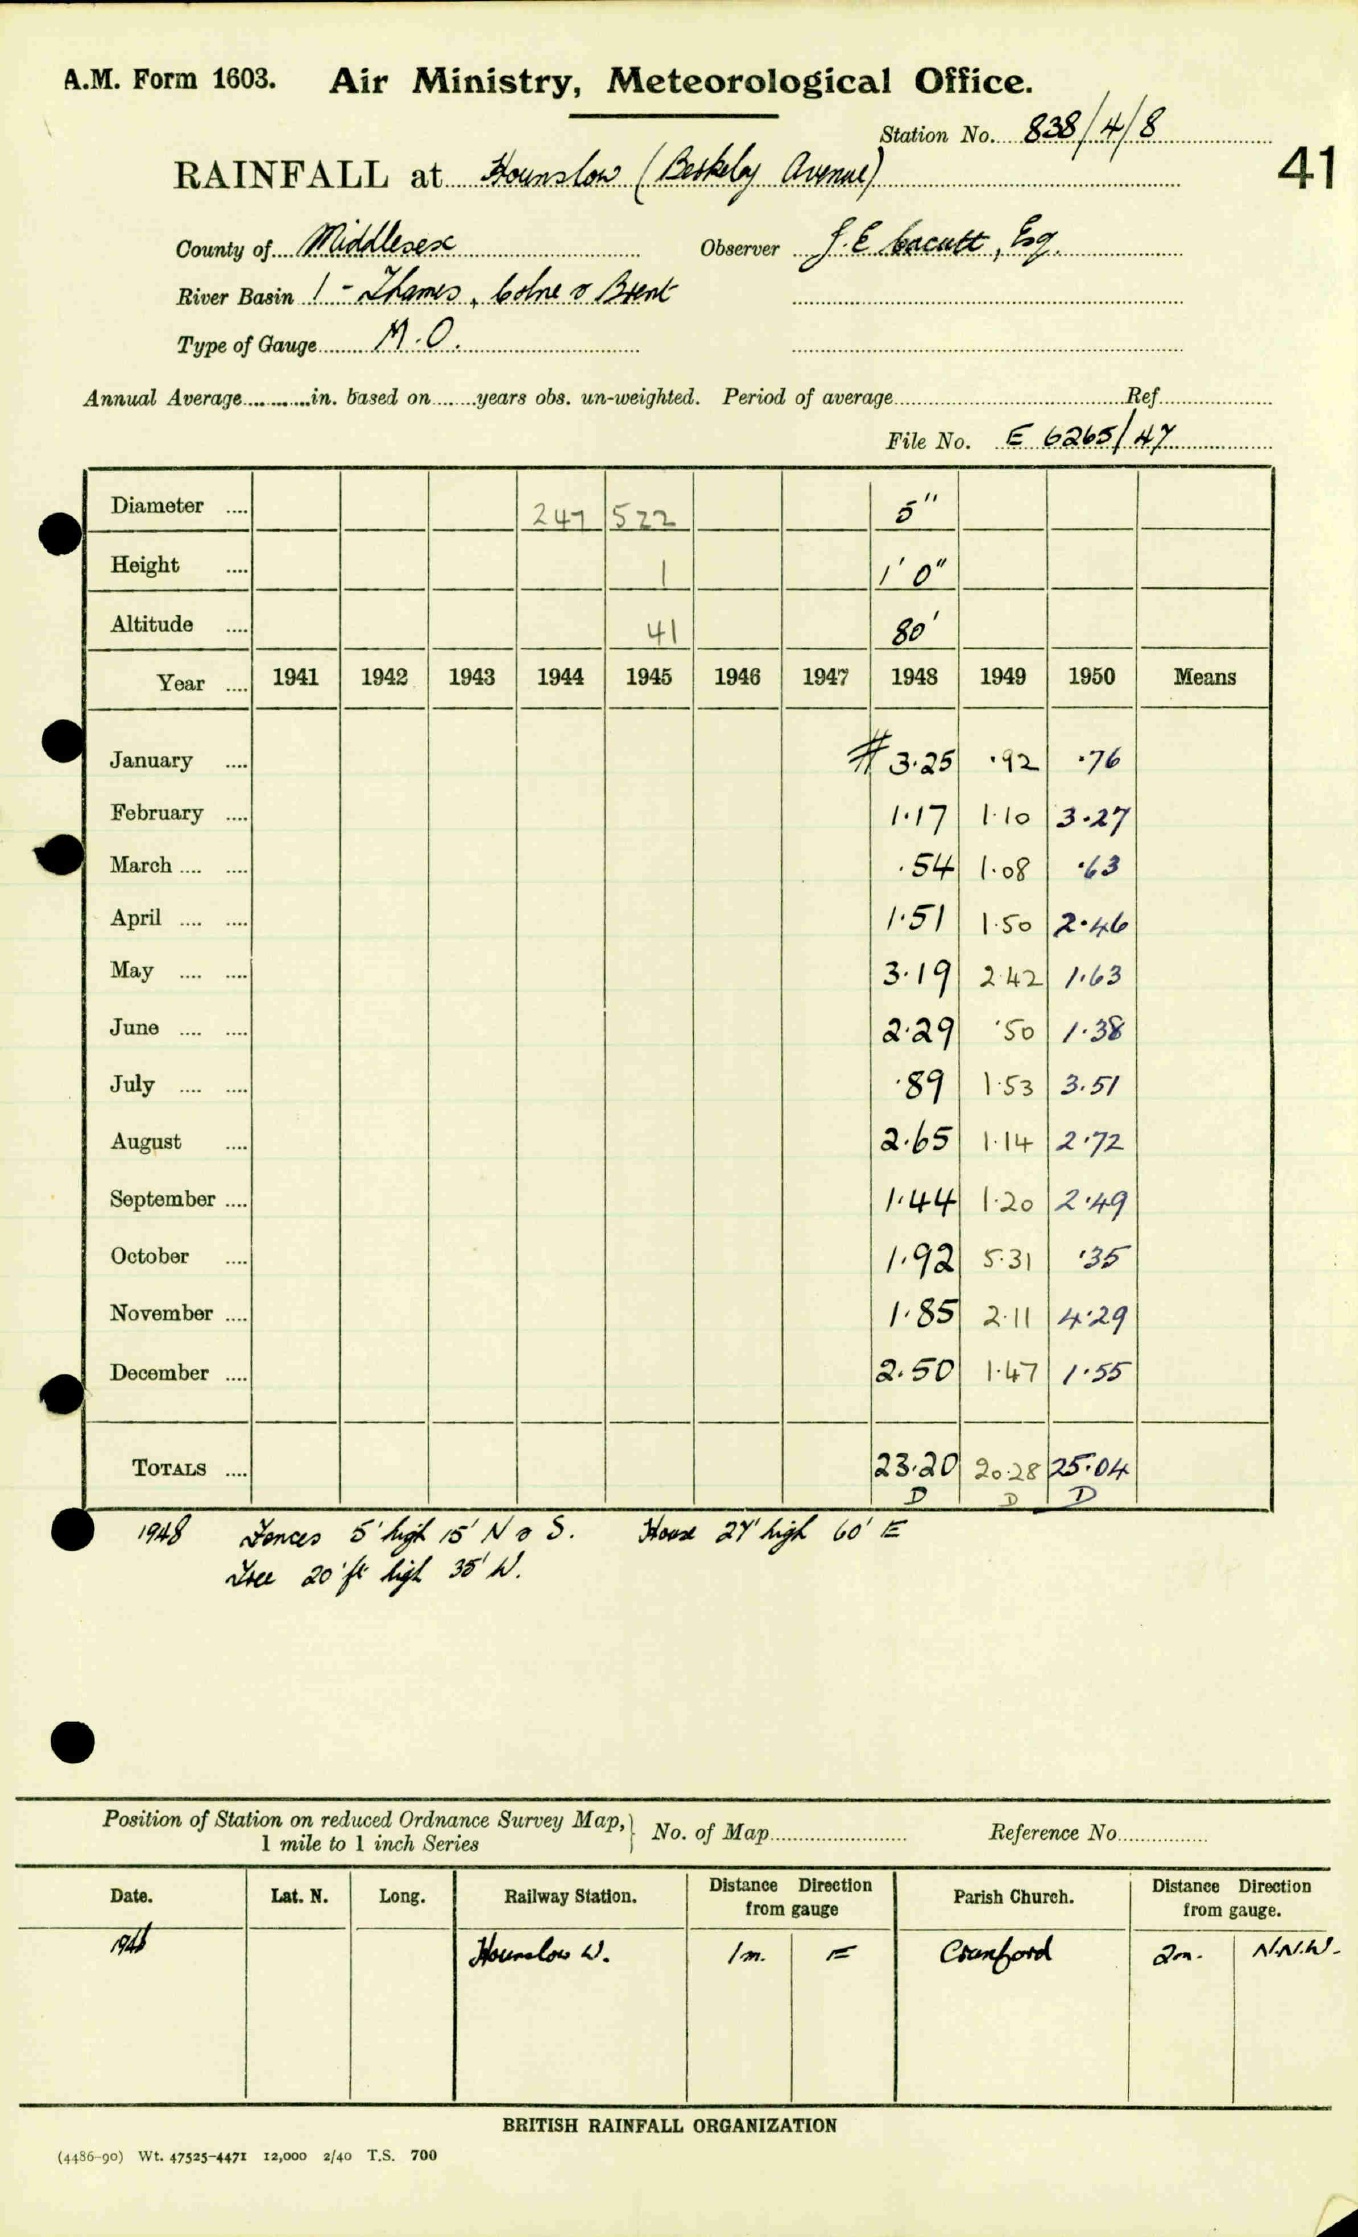 A.M. Form 1603. Air Ministry, Meteorological Office.
Station No. 838/4/8
41
RAINFALL at Hounslow (Berkeley Avenue)
County of Middlesex Observer J. E. Cacutt, Esq.
River Basin 1 - Thames, Colne & Brent
Type of Gauge M.O.
Annual Average in. based on years obs. un-weighted. Period of average Ref
File No. E 6265/47
Diameter 247 522 5"
Height 1 1' 0"
Altitude 41 80'
Year 1941 1942 1943 1944 1945 1946 1947 1948 1949 1950 Means
January # 3.25 .92 .76
February 1.17 1.10 3.27
March .54 1.08 .63
April 1.51 1.50 2.46
May 3.19 2.42 1.63
June 2.29 .50 1.38
July .89 1.53 3.51
August 2.65 1.14 2.72
September 1.44 1.20 2.49
October 1.92 5.31 .35
November 1.85 2.11 4.29
December 2.50 1.47 1.55
TOTALS 23.20 20.28 25.04
D D D
1948 Fences 5' high 15' N & S. House 27' high 60' E
Tree 20' ft high 35' W.
Position of Station on reduced Ordnance Survey Map, 1 mile to 1 inch Series } No. of Map Reference No
Date. Lat. N. Long. Railway Station. Distance Direction from gauge Parish Church. Distance Direction from gauge.
1948 Hounslow W. 1m. E Cranford 2m. N.N.W.
BRITISH RAINFALL ORGANIZATION
(4486-90) Wt. 47525-4471 12,000 2/40 T.S. 700